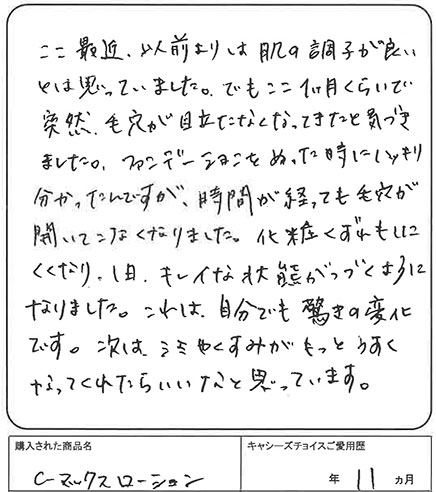 ここ最近、以前よりは肌の調子が良い
とは思っていました。でもここ1ヶ月くらいで
突然、毛穴が目立たなくなってきたと気づき
ました。ファンデーションをぬった時にハッキリ
分かったんですが、時間が経っても毛穴が
開いてこなくなりました。化粧くずれもしに
くくなり、1日、キレイな状態がつづくように
なりました。これは、自分でも驚きの変化
です。次は、シミやくすみがもっとうすく
なってくれたらいいなと思っています。
購入された商品名
C-マックスローション
キャシーズチョイスご愛用歴
年 11 ヵ月